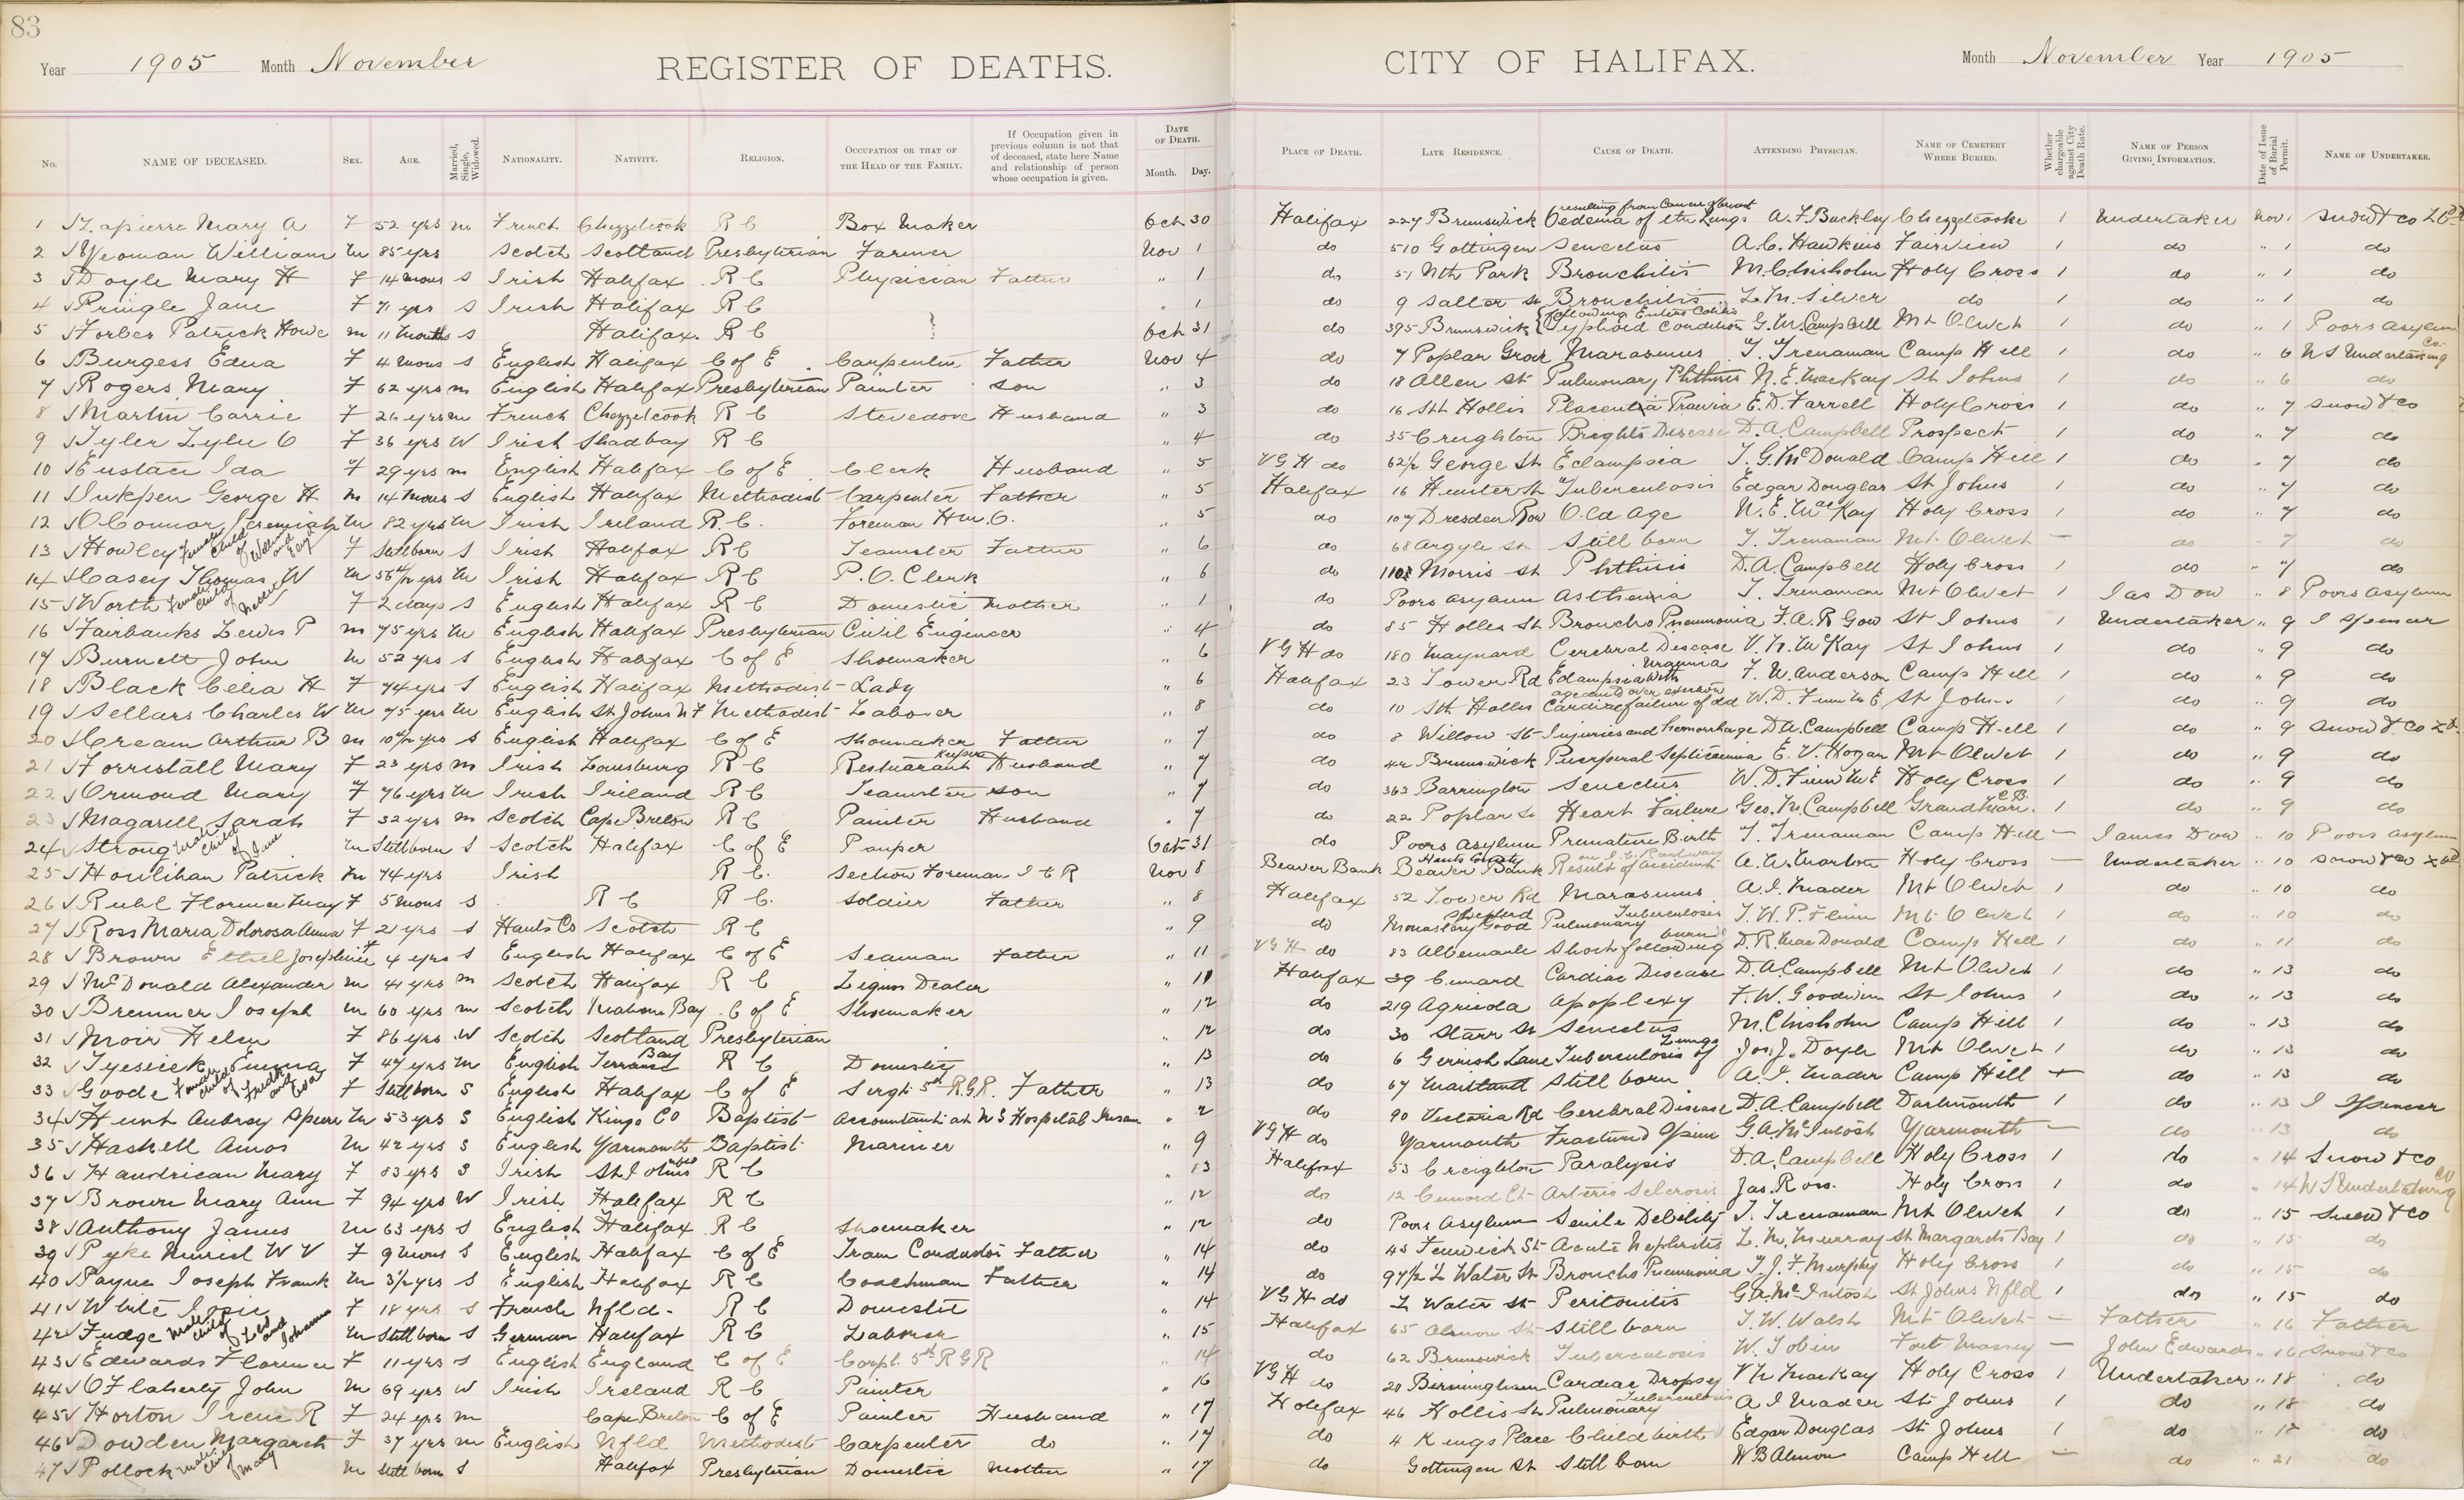 83
Year 1905 Month November REGISTER OF DEATHS. CITY OF HALIFAX. Month November Year 1905
No. NAME OF DECEASED. SEX. AGE. Married, Single, Widowed. NATIONALITY. NATIVITY. RELIGION. OCCUPATION OR THAT OF THE HEAD OF THE FAMILY. If Occupation given in previous column is not that of deceased, state here Name and relationship of person whose occupation is given. DATE OF DEATH. Month. Day. PLACE OF DEATH. LATE RESIDENCE. CAUSE OF DEATH. ATTENDING PHYSICIAN. NAME OF CEMETERY WHERE BURIED. Whether chargeable against City Death Rate. NAME OF PERSON GIVING INFORMATION. Date of Issue of Burial Permit. NAME OF UNDERTAKER.
1 Lapierre Mary A F 52 yrs m French Chezzetcook R C Box Maker Oct 30 Halifax 227 Brunswick Oedema of the Lungs resulting from Cancer of breast A. F. Buckley Chezzetcooke 1 Undertaker Nov 1 Snow & Co
2 Yeoman William m 85 yrs Scotch Scotland Presbyterian Farmer Nov 1 do 510 Gottingen Senectus A. C. Hawkins Fairview 1 do " 1 do
3 Doyle Mary H F 14 mons S Irish Halifax R C Physician Father " 1 do 51 Nth Park Bronchitis M. Chisholm Holy Cross 1 do " 1 do
4 Pringle Jane F 71 yrs S Irish Halifax R C " 1 do 9 Salter St Bronchitis L. M. Silver do 1 do " 1 do
5 Forbes Patrick Howe m 11 months S Halifax R C Oct 31 do 395 Brunswick Typhoid Condition following Entero Colitis G. M. Campbell Mt Olivet 1 do " 1 Poors Asylum
6 Burgess Edna F 4 mons S English Halifax C of E Carpenter Father Nov 4 do 7 Poplar Grove Marasmus T. Trenaman Camp Hill 1 do " 6 N S Undertaking Co.
7 Rogers Mary F 62 yrs m English Halifax Presbyterian Painter son " 3 do 18 Allen St Pulmonary Phthisis N. E. MacKay St Johns 1 do " 6 do
8 Martin Carrie F 26 yrs m French Chezzetcook R C Stevedore Husband " 3 do 16 Sth Hollis Placentia Praevia E. D. Farrell Holy Cross 1 do " 7 Snow & Co
9 Tyler Lylie C F 36 yrs W Irish Shad bay R C " 4 do 35 Creighton Brights Disease D. A. Campbell Prospect 1 do " 7 do
10 Eustace Ida F 29 yrs m English Halifax C of E Clerk Husband " 5 V G H do 62 1/2 George St Eclampsia T. G. McDonald Camp Hill 1 do " 7 do
11 Inkpen George H m 14 mons S English Halifax Methodist Carpenter Father " 5 Halifax 16 Hunter St Tuberculosis Edgar Douglas St Johns 1 do " 7 do
12 O'Connor Jeremiah m 82 yrs m Irish Ireland R. C. Foreman H. W. O. " 5 do 107 Dresden Row Old Age N. E. MacKay Holy Cross 1 do " 7 do
13 Howley Female child of William and Eliza F Still born S Irish Halifax R C Teamster Father " 6 do 68 Argyle St Still born T. Trenaman Mt Olivet — do " 7 do
14 Casey Thomas W m yrs m Irish Halifax R C P. O. Clerk " 6 do Morris St Phthisis D. A. Campbell Holy Cross 1 do " 7 do
15 Worth Female child of Nellie F 2 days S English Halifax R C Domestic Mother " 1 do Poors Asylum Asthenia T. Trenaman Mt Olivet 1 Jas Dow " 8 Poors Asylum
16 Fairbanks Lewis P m 75 yrs m English Halifax Presbyterian Civil Engineer " 4 do 85 Hollis St Broncho Pneumonia F. A. R Gow St Johns 1 Undertaker " 9 J Spencer
17 Burnett John m 52 yrs S English Halifax C of E Shoemaker " 6 V G H do 180 Maynard Cerebral Disease V. N. McKay St Johns 1 do " 9 do
18 Black Celia H F 74 yrs S English Halifax Methodist Lady " 6 Halifax 23 Tower Rd Edampsia with Uraemia F. W. Anderson Camp Hill 1 do " 9 do
19 Sellars Charles W m 75 yrs m English St Johns N F Methodist Laborer " 8 do 10 Sth Hollis Cardiac failure of old age and over exertion W. D. Finn M E St Johns 1 do " 9 do
20 Cream Arthur B m yrs S English Halifax C of E Shoemaker Father " 7 do 8 Willow St Injuries and hemorrhage D A. Campbell Camp Hill 1 do " 9 Snow & Co
21 Forrestall Mary F 23 yrs m Irish Louisburg R C Restuarant Keeper Husband " 7 do 42 Brunswick Puerperal Septicaemia E. V. Hogan Mt Olivet 1 do " 9 do
22 Ormond Mary F 76 yrs m Irish Ireland R C Teamster son " 7 do 362 Barrington Senectus W. D. Finn M E Holy Cross 1 do " 9 do
23 Magarell Sarah F 32 yrs m Scotch Cape Breton R C Painter Husband " 7 do 22 Poplar St Heart Failure Geo. M. Campbell Grand C. B. 1 do " 9 do
24 Strong Male child of Jane m Stillborn S Scotch Halifax C of E Pauper Oct 31 do Poors Asylum Premature Birth T. Trenaman Camp Hill — James Dow " 10 Poors Asylum
25 Houlihan Patrick m 74 yrs Irish R C. Section Foreman I C R Nov 8 Beaver Bank Beaver Bank Hants County Result of accident on I. C. Railway A. W. Morton Holy Cross — Undertaker " 10 Snow & Co
26 Ruhl Florence May F 5 mons S R C R C. Soldier Father " 8 Halifax 52 Tower Rd Marasmus A. I. Mader Mt Olivet 1 do " 10 do
27 Ross Maria Dolorosa Anna F 21 yrs S Hants Co Scotch R C " 9 do Monastery Good Shepherd Pulmonary Tuberculosis T. W. P. Flinn Mt Olivet 1 do " 10 do
28 Brown Ethel Josephine F 4 yrs S English Halifax C of E Seaman Father " 11 V G H do 83 Albemarle Shock following burns D. R. MacDonald Camp Hell 1 do " 11 do
29 McDonald Alexander m 41 yrs m Scotch Halifax R C Liquor Dealer " 11 Halifax 39 Cunard Cardiac Disease D. A. Campbell Mt Olivet 1 do " 13 do
30 Bremner Joseph m 60 yrs m Scotch Mahone Bay C of E Shoemaker " 12 do 219 Agricola Apoplexy F. W. Goodwin St Johns 1 do " 13 do
31 Moir Helen F 86 yrs W Scotch Scotland Presbyterian " 12 do 30 Starr St Senectus M. Chisholm Camp Hill 1 do " 13 do
32 Emma F 47 yrs m English Terrance Bay R C Domestic " 13 do 6 Gerrish Lane Tuberculosis of Lungs Jos. J. Doyle Mt Olivet 1 do " 13 do
33 Goode Female child of Fredk and Eva F Stillborn S English Halifax C of E Sergt 5th R. G. R. Father " 13 do 67 Maitland Still born A. I. Mader Camp Hill — do " 13 do
34 Hunt Aubrey Spurr m 53 yrs S English Kings Co Baptist Accountant at N S Hospital Insane " 2 do 90 Victoria Rd Cerebral Disease D. A. Campbell Dartmouth 1 do " 13 J Spencer
35 Haskell Amos m 42 yrs S English Yarmouth Baptist Mariner " 9 V G H do Yarmouth Fractured Spine G. A. McIntosh Yarmouth — do " 13 do
36 Handrican Mary F 83 yrs S Irish St Johns nfld R C " 13 Halifax 53 Creighton Paralysis D. A. Campbell Holy Cross 1 do " 14 Snow & Co
37 Brown Mary Ann F 94 yrs W Irish Halifax R C " 12 do 12 Cunard Ct Arterio Sclerosis Jas. Ross. Holy Cross 1 do " 14 N S Undertaking Co
38 Anthony James m 63 yrs S English Halifax R C Shoemaker " 12 do Poors Asylum Senile Debility T. Trenaman Mt Olivet 1 do " 15 Snow & Co
39 Pyke Muriel W V F 9 mons S English Halifax C of E Tram Conductor Father " 14 do 45 Fenwick St Acute Nephritis L. M. Murray St Margarets Bay 1 do " 15 do
40 Payne Joseph Frank m 3 1/2 yrs S English Halifax R C Coachman Father " 14 do 97 1/2 L Water St Broncho Pneumonia T. J. F. Murphy Holy Cross 1 do " 15 do
41 White Josie F 18 yrs S French Nfld. R C Domestic " 14 V G H do L Water St Peritonitis G. A. McIntosh St Johns Nfld 1 do " 15 do
42 Fudge Male child of Levi and Johanna m Still born S German Halifax R C Laborer " 15 Halifax 65 Almon St Still born T. W. Walsh Mt Olivet — Father " 16 Father
43 Edwards Florence F 11 yrs S English England C of E Corpl. 5th R G R " 14 do 62 Brunswick Tuberculosis W. Tobin Fort Massey — John Edwards " 16 Snow & Co
44 O'Flaherty John m 69 yrs W Irish Ireland R C Painter " 16 V G H do 20 Birmingham Cardiac Dropsy V N MacKay Holy Cross 1 Undertaker " 18 do
45 Horton Irene R F 24 yrs m Cape Breton C of E Painter Husband " 17 Halifax 46 Hollis St Pulmonary Tuberculosis A I Mader St Johns 1 do " 18 do
46 Dowden Margaret F 37 yrs m English Nfld Methodist Carpenter do " 17 do 4 Kings Place Childbirth Edgar Douglas St Johns 1 do " 18 do
47 Pollock Male child of Mary m Still born S Halifax Presbyterian Domestic Mother " 17 do Gottingen St Still born W B Almon Camp Hill — do " 21 do